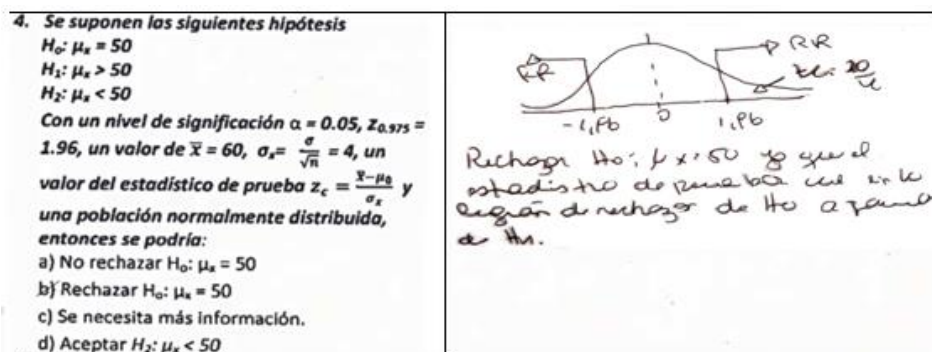 4. Se suponen las siguientes hipótesis
H₀: μₓ = 50
H₁: μₓ > 50
H₂: μₓ < 50
Con un nivel de significación α = 0.05, Z₀.₉₇₅ =
1.96, un valor de x̅ = 60, σₓ= σ/√n = 4, un
valor del estadístico de prueba z꜀ = (x̅−μ₀)/σₓ y
una población normalmente distribuida,
entonces se podría:
a) No rechazar H₀: μₓ = 50
b) Rechazar H₀: μₓ = 50
c) Se necesita más información.
d) Aceptar H₂: μₓ < 50
RR
RR
-1,96 0 1,96
Rechazar Ho: μx=50 ya que el
estadistico de prueba cae en la
región de rechazo de Ho a favor
de H1.